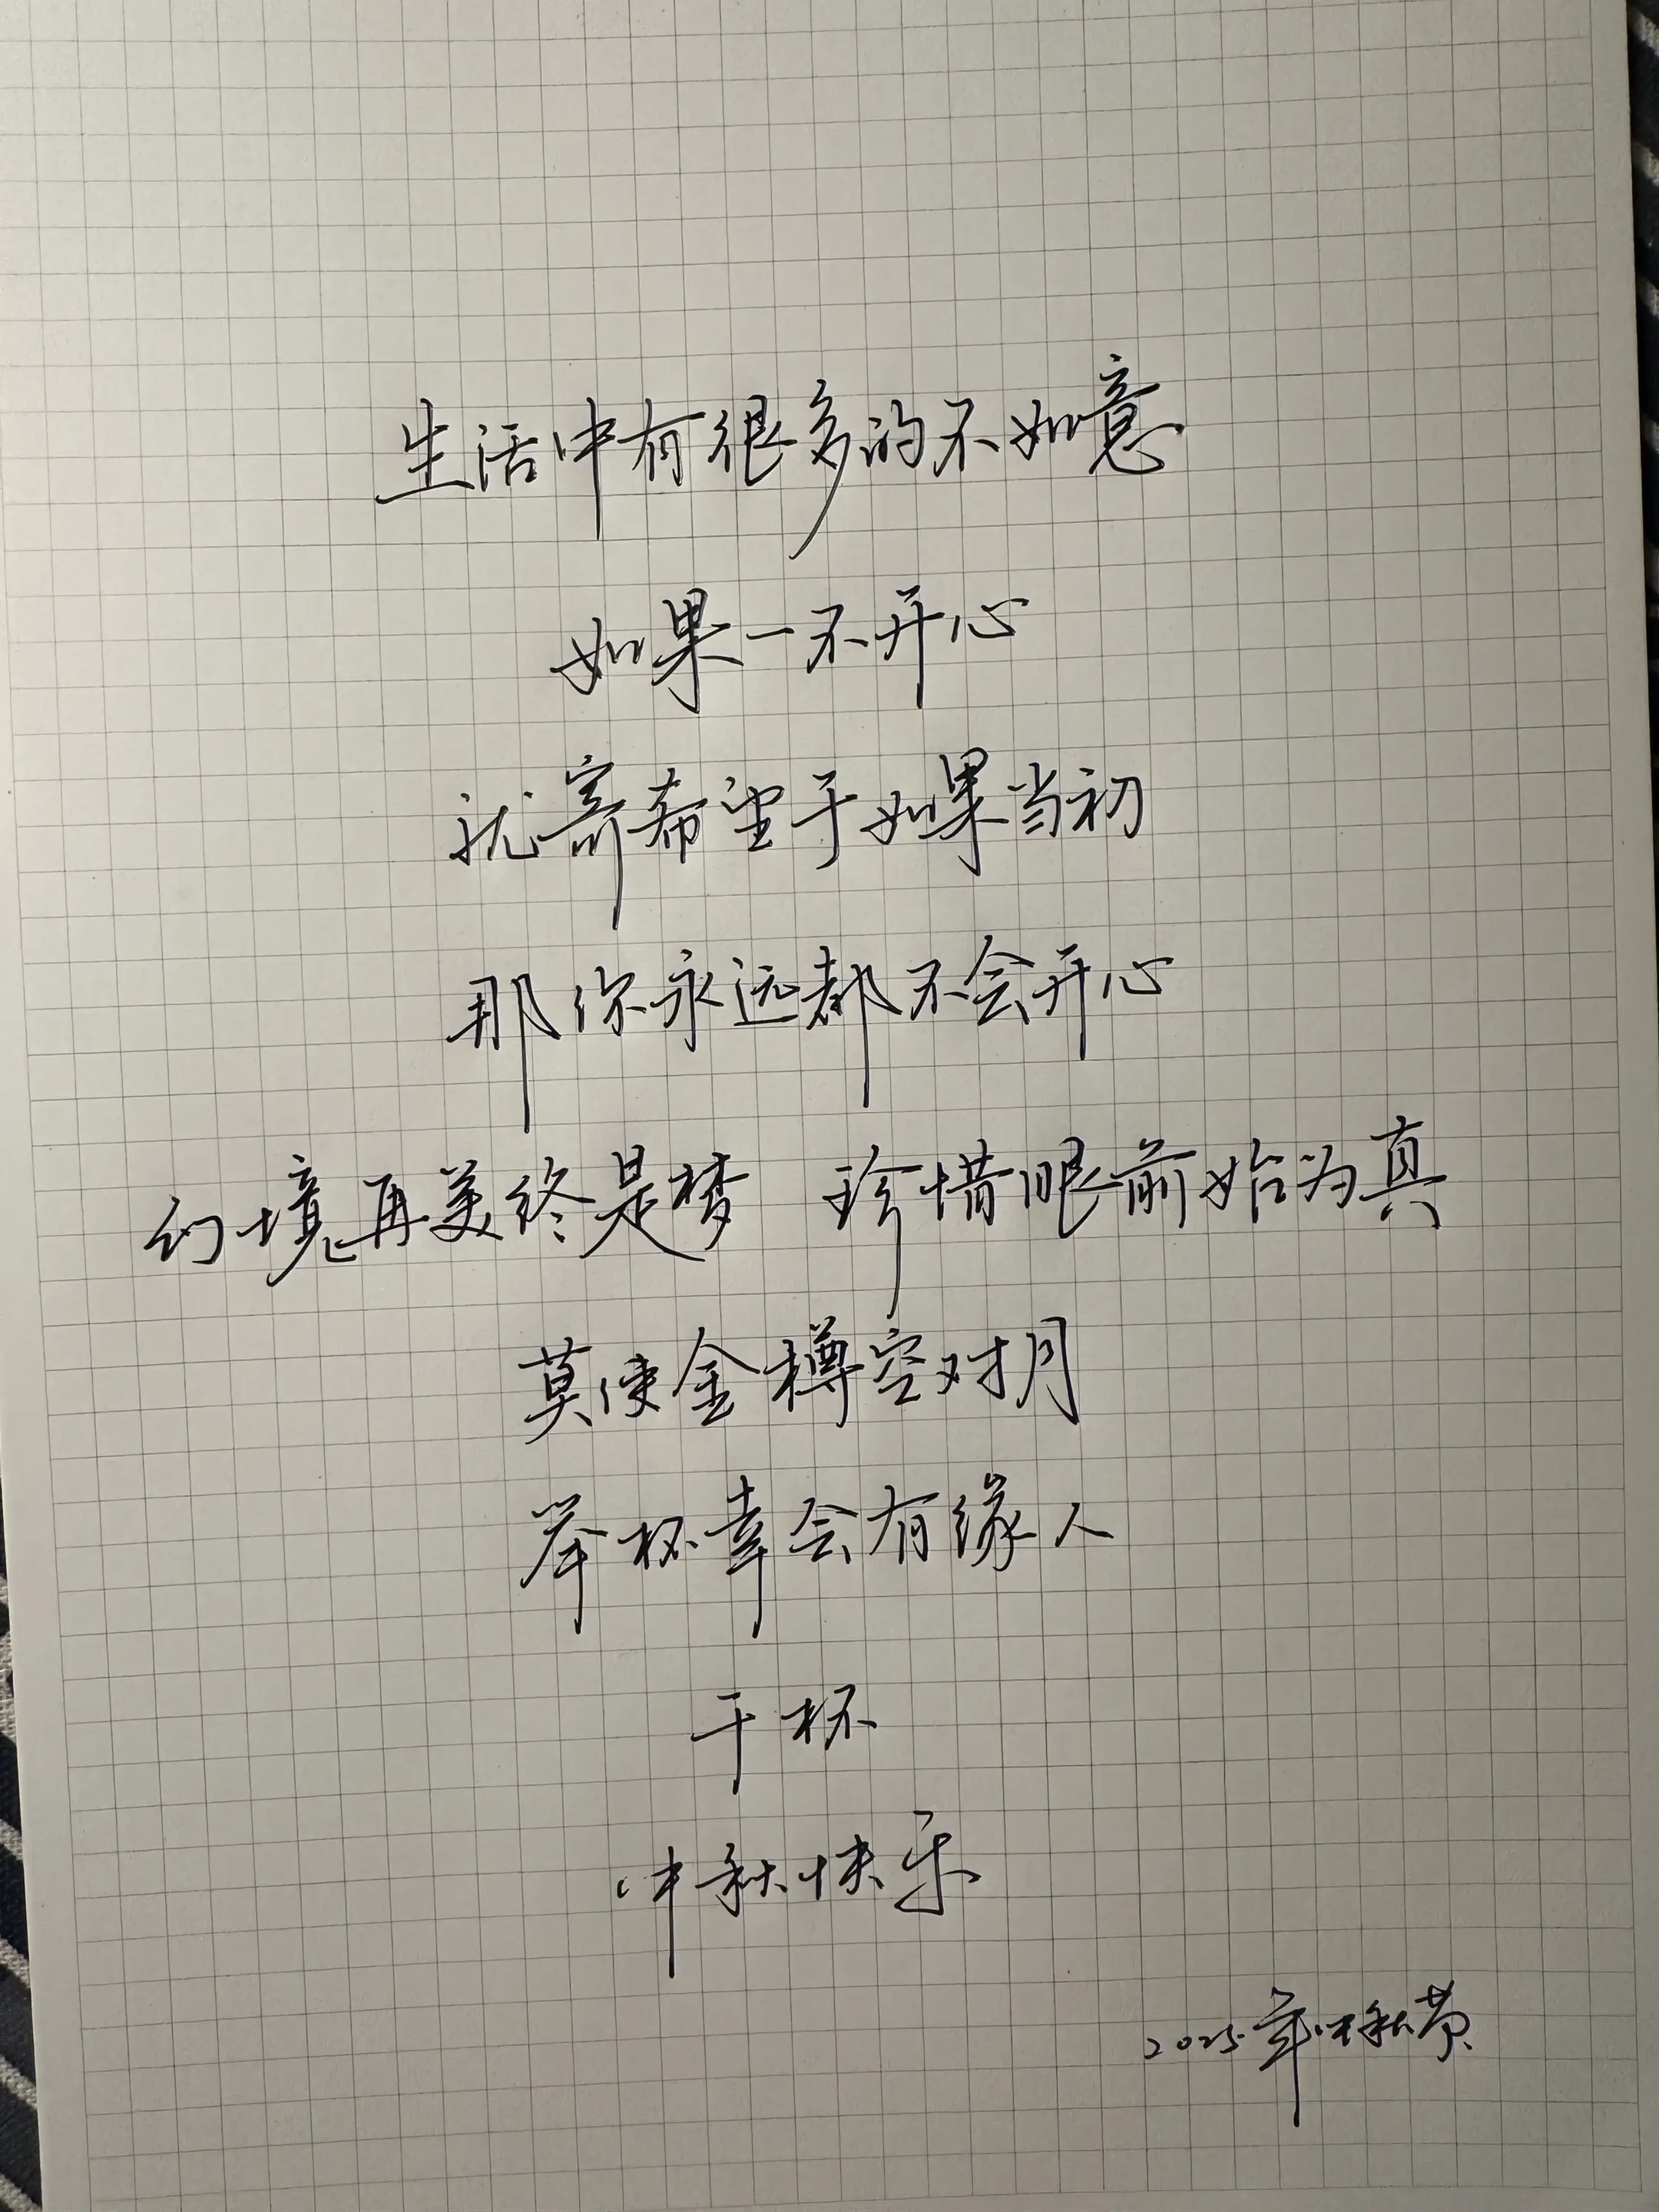 生活中有很多的不如意
如果一不开心
就寄希望于如果当初
那你永远都不会开心
幻境再美终是梦 珍惜眼前始为真
莫使金樽空对月
举杯幸会有缘人
干杯
中秋快乐
2025年中秋